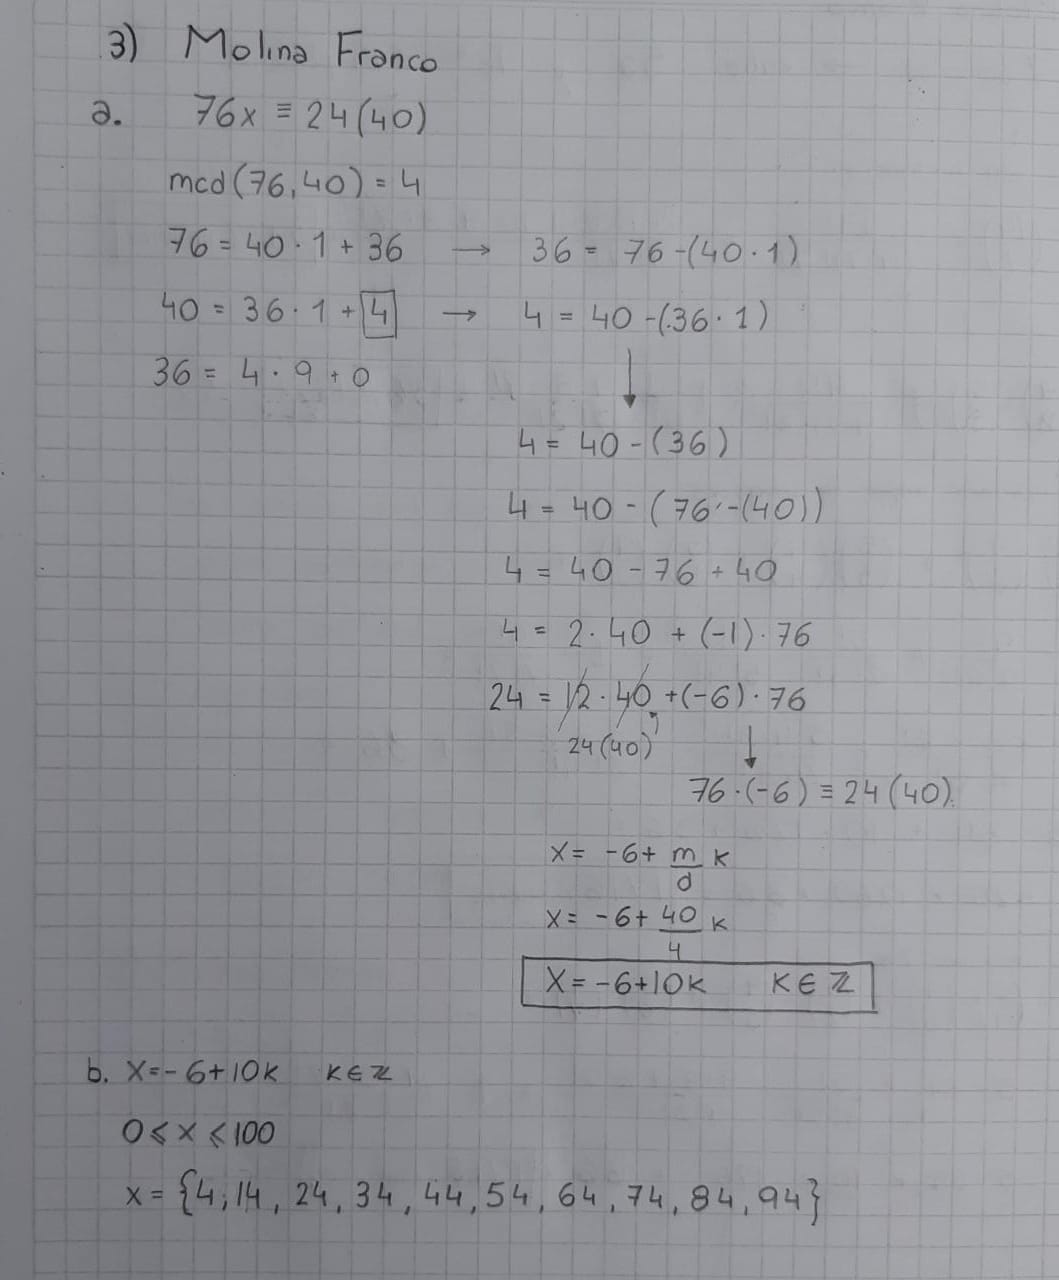 3) Molina Franco
a. 76x ≡ 24(40)
mcd(76,40) = 4
76 = 40·1 + 36 → 36 = 76-(40·1)
40 = 36·1 + 4 → 4 = 40-(36·1)
36 = 4·9 + 0
↓
4 = 40-(36)
4 = 40-(76-(40))
4 = 40-76+40
4 = 2·40 + (-1)·76
24 = 12·40 +(-6)·76
24(40)
↓
76·(-6) ≡ 24(40).
x = -6+ m/d k
x = -6+ 40/4 k
X = -6+10k K∈ℤ
b. x=-6+10k k∈ℤ
0≤x≤100
x = {4,14, 24, 34, 44, 54, 64, 74, 84, 94}